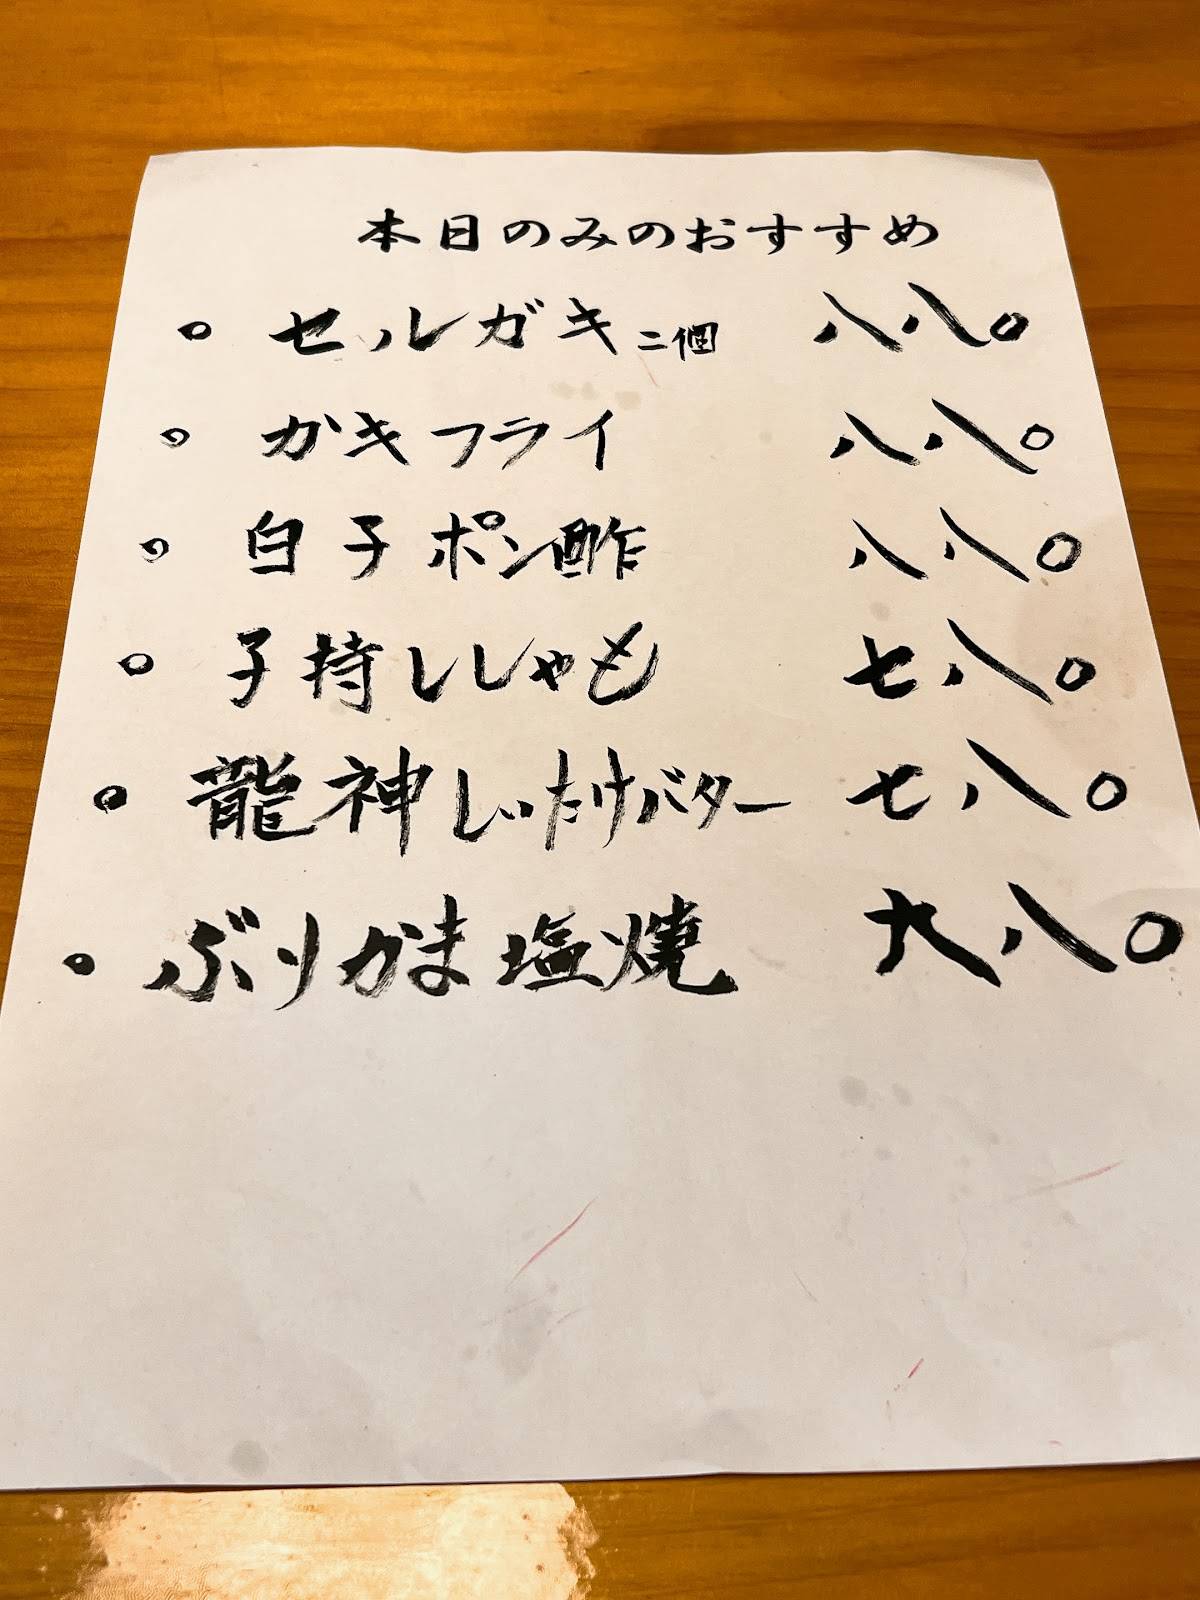 本日のみのおすすめ
○ セルガキ二個 八八〇
○ カキフライ 八八〇
○ 白子ポン酢 八八〇
○ 子持ししゃも 七八〇
○ 龍神しいたけバター 七八〇
○ ぶりかま塩焼 九八〇